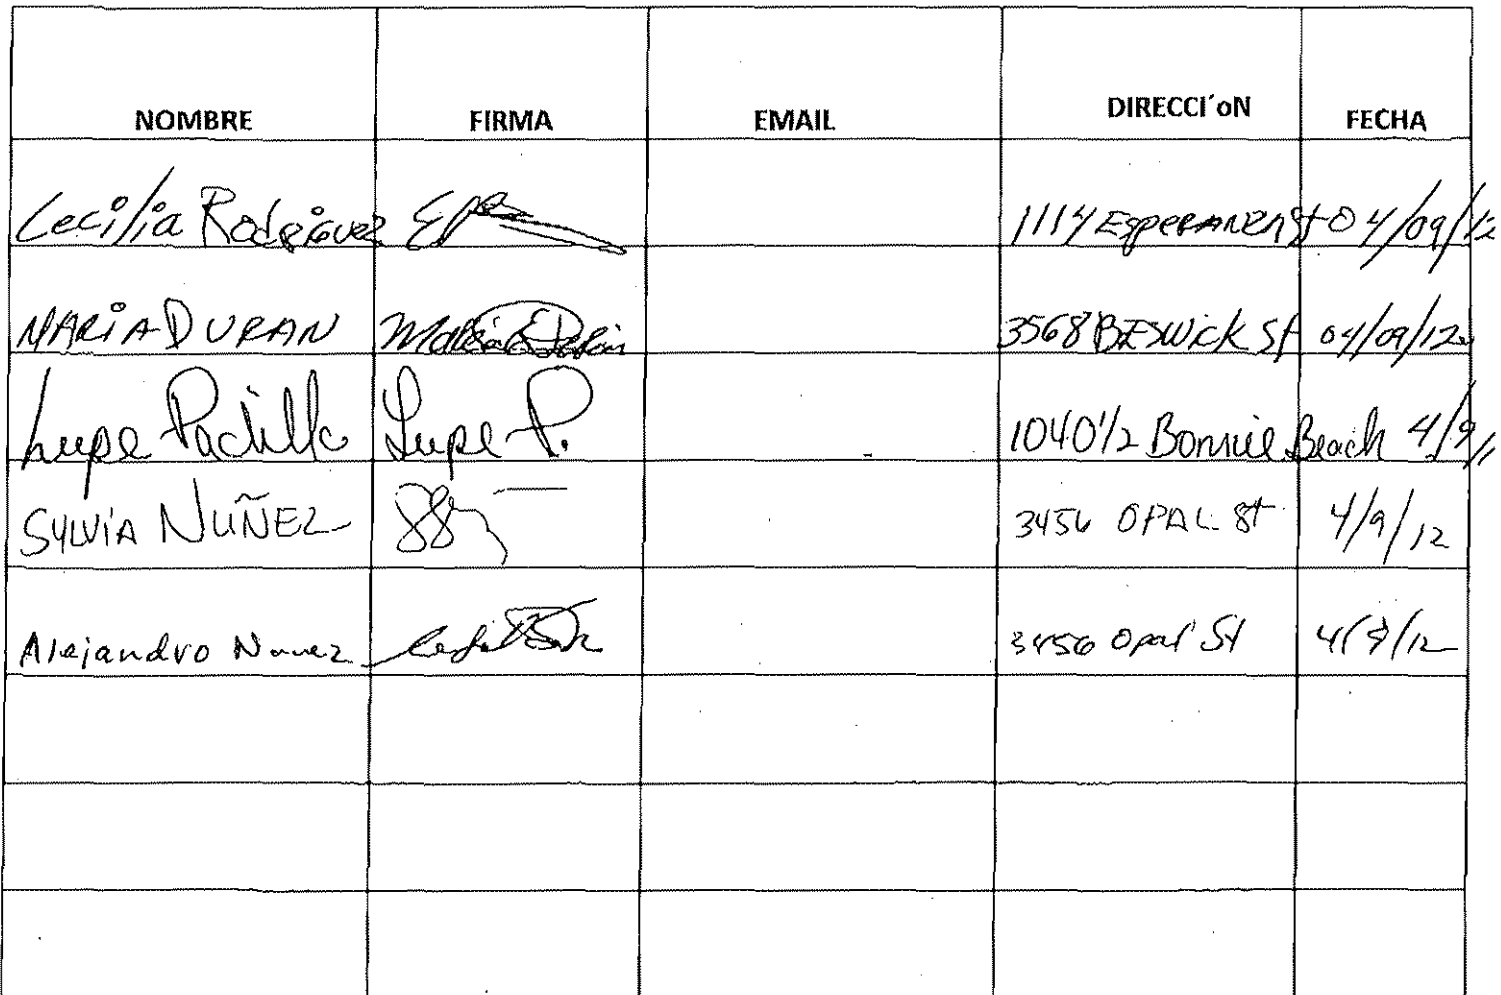 NOMBRE FIRMA EMAIL DIRECCI´oN FECHA
Cecilia Rodriguez 1114 Esperanza St 04/09/12
MARiA DURAN Maria E Duran 3568 BESWiCK St 04/09/12
Lupe Padilla Lupe P. 1040 1/2 Bonnie Beach 4/9/1
SYLViA NUÑEZ 3456 OPAL St 4/9/12
Alejandro Nunez 3456 Opal St 4/9/12